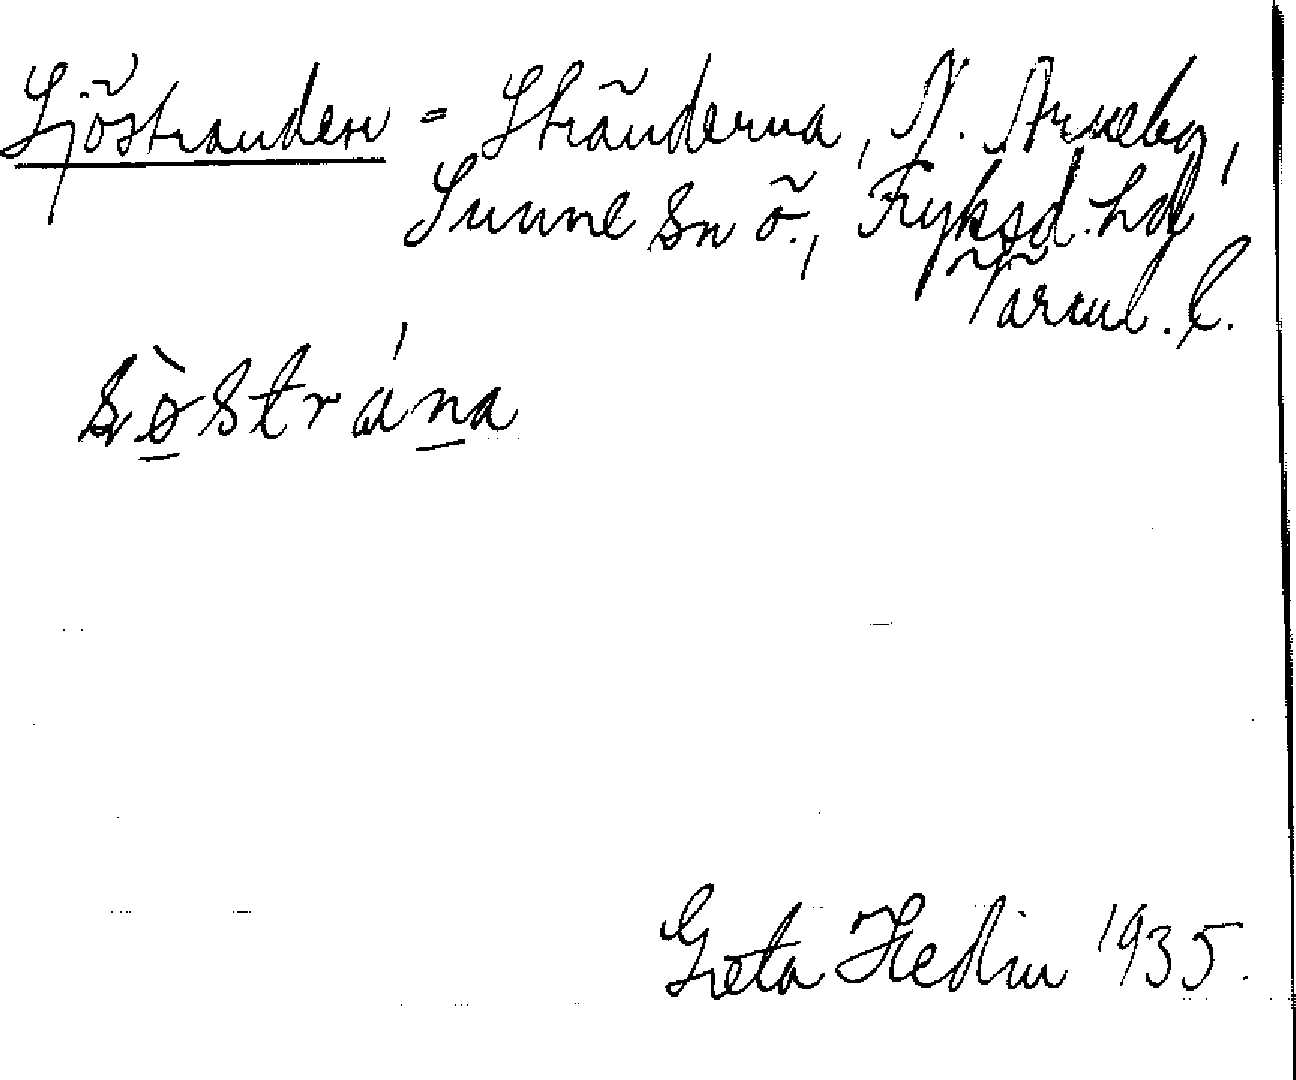 Sjöstranden = Stränderna, N. Arneby,
Sunne sn ö., Fryksd. hd,
Värml. l.
sòstrána
Greta Hedin 1935.